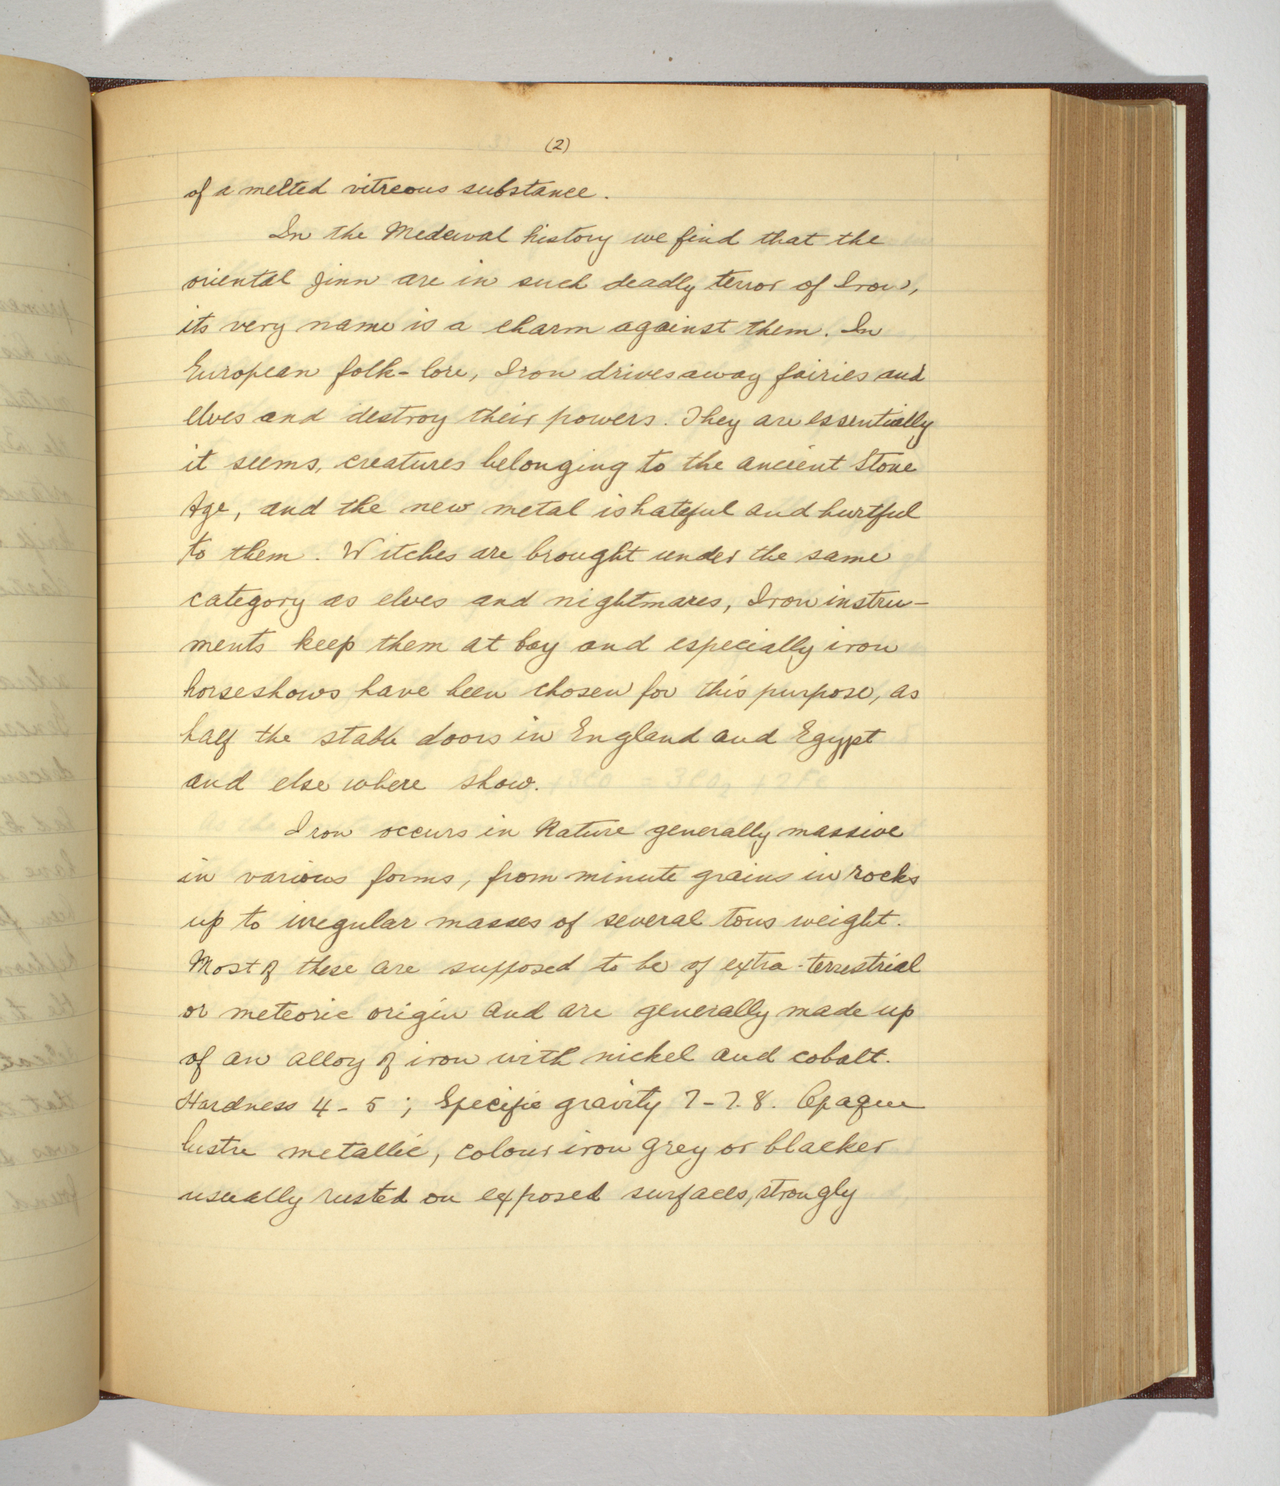 (2)
of a melted vitreous substance.
In the Medeival history we find that the
oriental Jinn are in such deadly terror of Iron,
its very name is a charm against them. In
European folk-lore, Iron drives away fairies and
elves and destroy their powers. They are essentially
it seems, creatures belonging to the ancient Stone
Age, and the new metal is hateful and hurtful
to them. Witches are brought under the same
category as elves and nightmares, Iron instru-
ments keep them at bay and especially iron
horseshows have been chosen for this purpose, as
half the stable doors in England and Egypt
and else where show.
Iron occurs in Nature generally massive
in various forms, from minute grains in rocks
up to irregular masses of several tons weight.
Most of these are supposed to be of extra-terrestrial
or meteoric origin and are generally made up
of an alloy of iron with nickel and cobalt.
Hardness 4-5; Specific gravity 7-7.8. Opaque
lustre metallic, colour iron grey or blacker
usually rusted on exposed surfaces, strongly